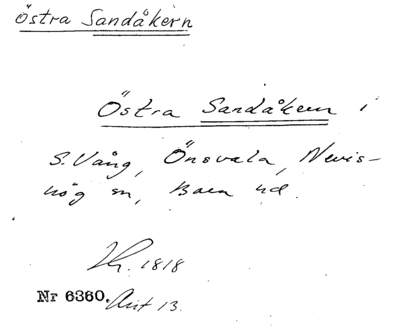 Östra Sandåkern
Östra Sandåkern i
S. Vång, Önsvala, Nevis-
hög sn, Bara hd.
Kr. 1818
Nr 6360. Akt 13.